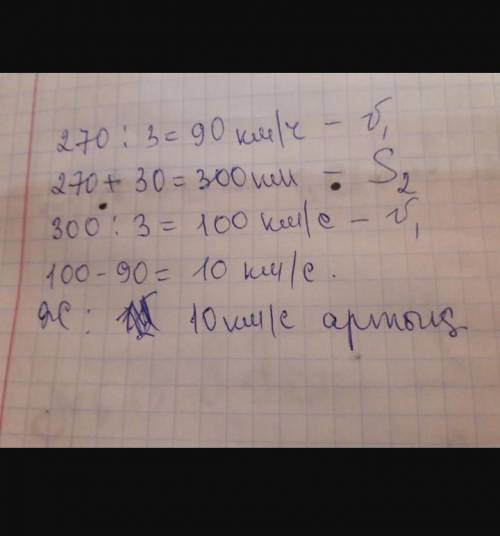 270 : 3 = 90 км/ч – v₁
270 + 30 = 300 км – S₂
300 : 3 = 100 км/с – v₁
100 - 90 = 10 км/с.
Ж: 10 км/с артық